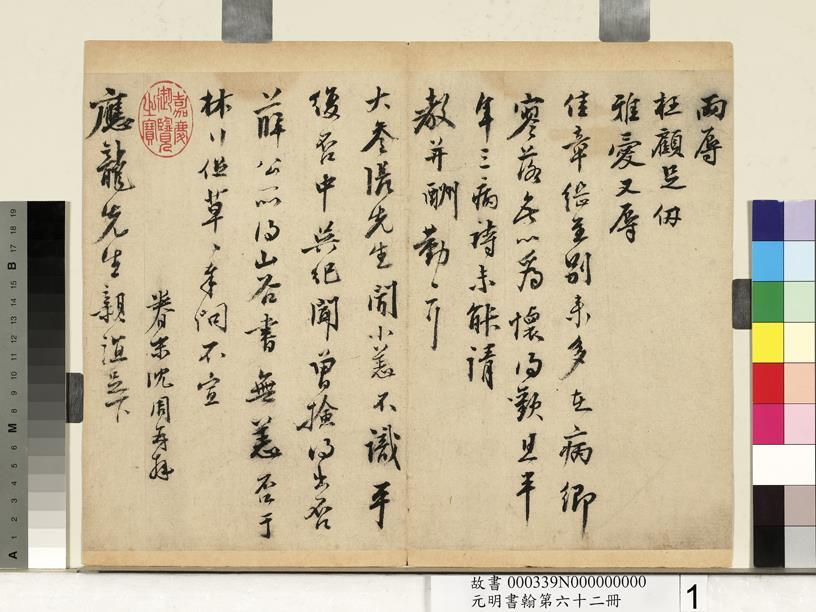 兩辱
枉顧足仞
雅愛又辱
佳章繼至別來多在病鄉
寥落無以為懷得歎且半
年三病詩未能請
教并酬勤〻耳
大參張先生聞小恙不識平
復否中吳紀聞曾撿得出否
薛公所得山谷書無恙否于
林下但草〻奉問不宣
眷末沈周再拜
應龍先生親誼足下
嘉慶御覽之寶
故書 000339N000000000
元明書翰第六十二冊
1
A 1 2 3 4 5 6 M 8 9 10 11 12 13 14 15 B 17 18 19